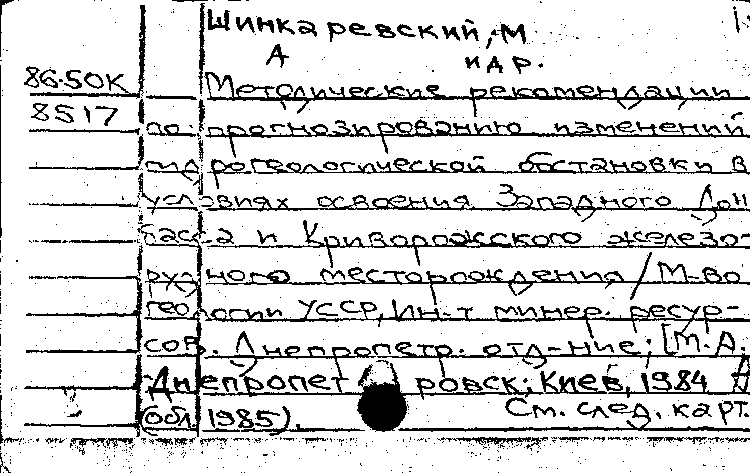 Шинкаревский, М
А и др.
86-50К Методические рекомендации
8517 по прогнозированию изменений
гидрогеологической обстановки в
условиях освоения Западного Дон
басса и Криворожского железо-
рудного месторождения / М-во
геологии УССР, Ин-т минер. ресур-
сов. Днепропетр. отд-ние; [М.А.
Днепропетровск; Киев, 1984
(обл. 1985). См. след. карт.